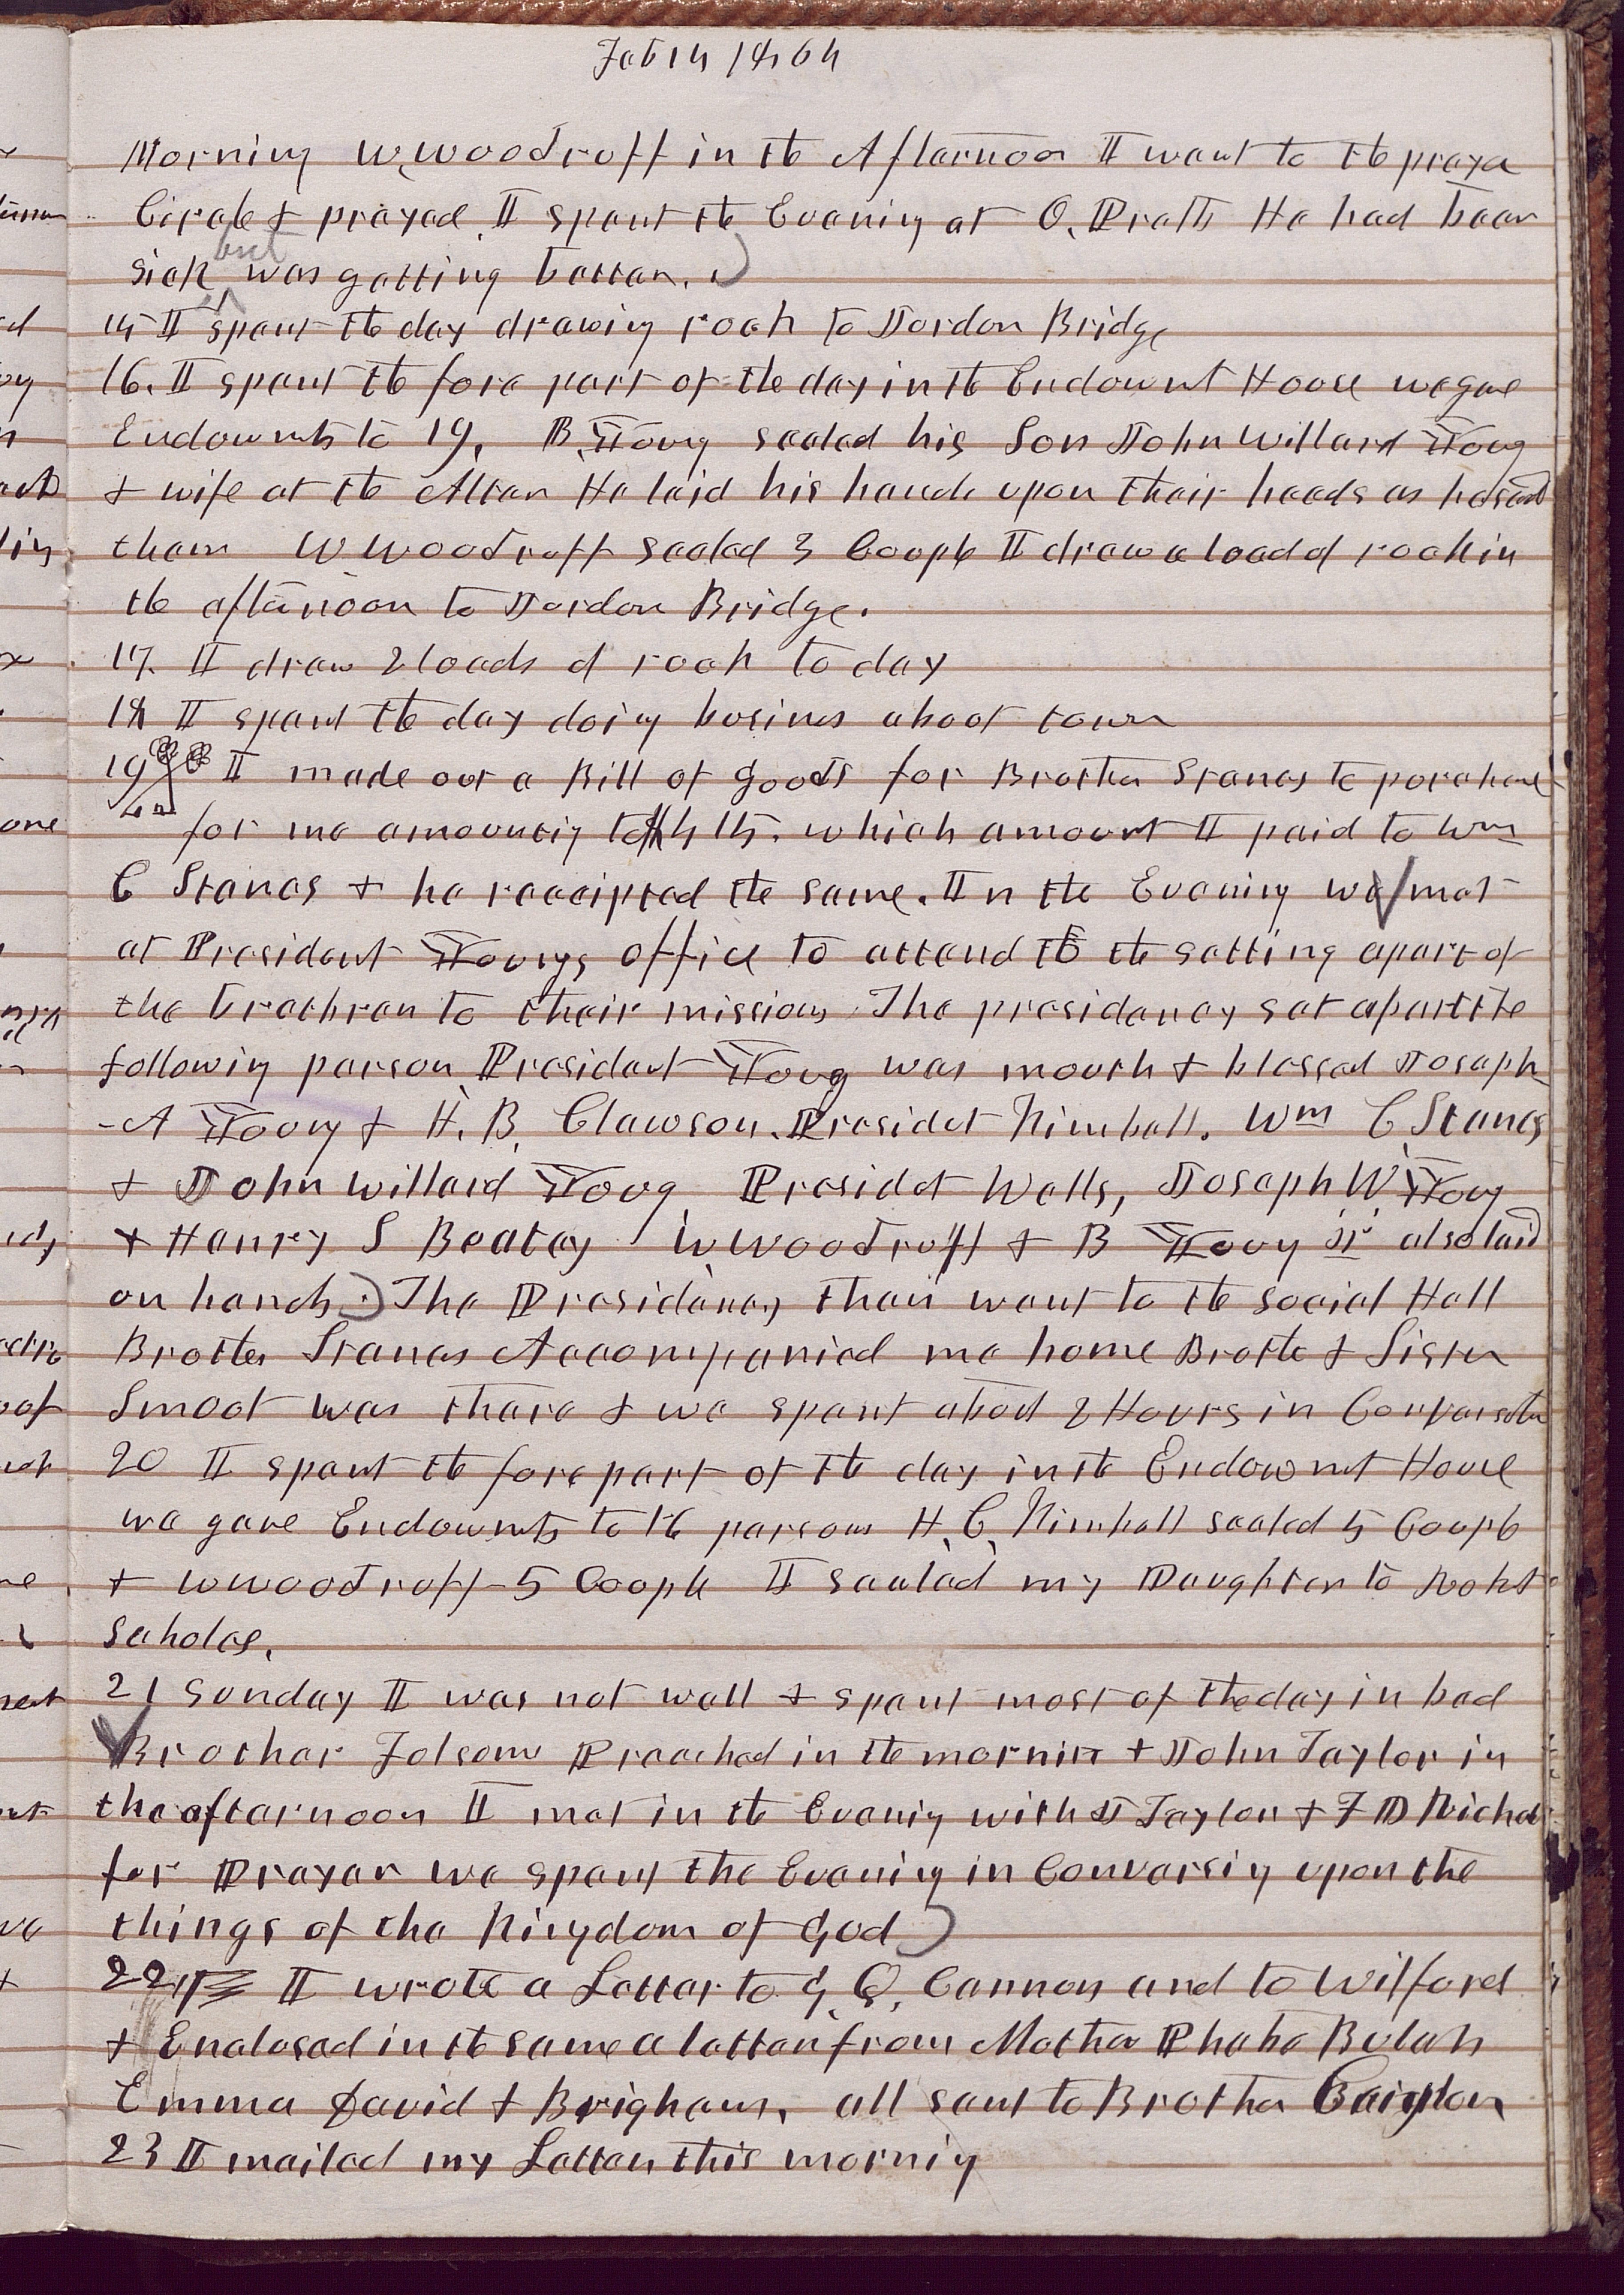 Feb 14 1864
Morning W. Woodruff in the Afternoon I went to the prayer
Circle & prayed. I spent the Evening at O. Pratts He had been
sick but was getting better.
15 I spent the day drawing rock to Jordon Bridge
16. I spent the fore part of the day in the Endowmt House we gave
Endowmts to 19, B. Young sealed his Son John Willard Young
& wife at the Altar He laid his hands upon their heads as he seald
them W Woodruff sealed 3 Couple I drew a load of rock in
the afternoon to Jordon Bridge.
17. I drew 2 loads of rock to day
18 I spent the day doing busines about town
19 I made out a Bill of goods for Brother Stanes to purchase
for me amounting to $415. which amount I paid to Wm
C Stanes & he receipted the same. In the Evening we met
at President Youngs office to attend to the setting apart of
the brethren to their missions The presidency set apart the
following person President Young was mouth & blessed Joseph
-A Young & H. B. Clawson. Presidet Kimball. Wm C. Stanes
& John Willard Young Presidet Wells, Joseph W. Young
& Henry S Beatey W Woodruff & B Young jr also laid
on hands.) The Presidency then went to the Social Hall
Brother Stanes Accompanied me home Brother & Sister
Smoot was there & we spent about 2 Hours in Conversation
20 I spent the fore part of the day in the Endowmt House
we gave Endowmts to 16 persons H. C. Kimball sealed 5 Couple
& W Woodruff 5 Couple I sealed my Daughter to Robt
Scholes.
21 Sunday I was not well & spent most of the day in bed
Brother Folsom Preached in the morning & John Taylor in
the afternoon I met in the Evening with J Taylor & F D Richards
for Prayer we spent the Evening in Conversing upon the
things of the Kingdom of God)
22 I wrote a Letter to G. Q. Cannon and to Wilford
& Enclosed in the same a letter from Mother Phebe Bulah
Emma David & Brigham, all sent to Brother
23 I mailed my Letter this morning